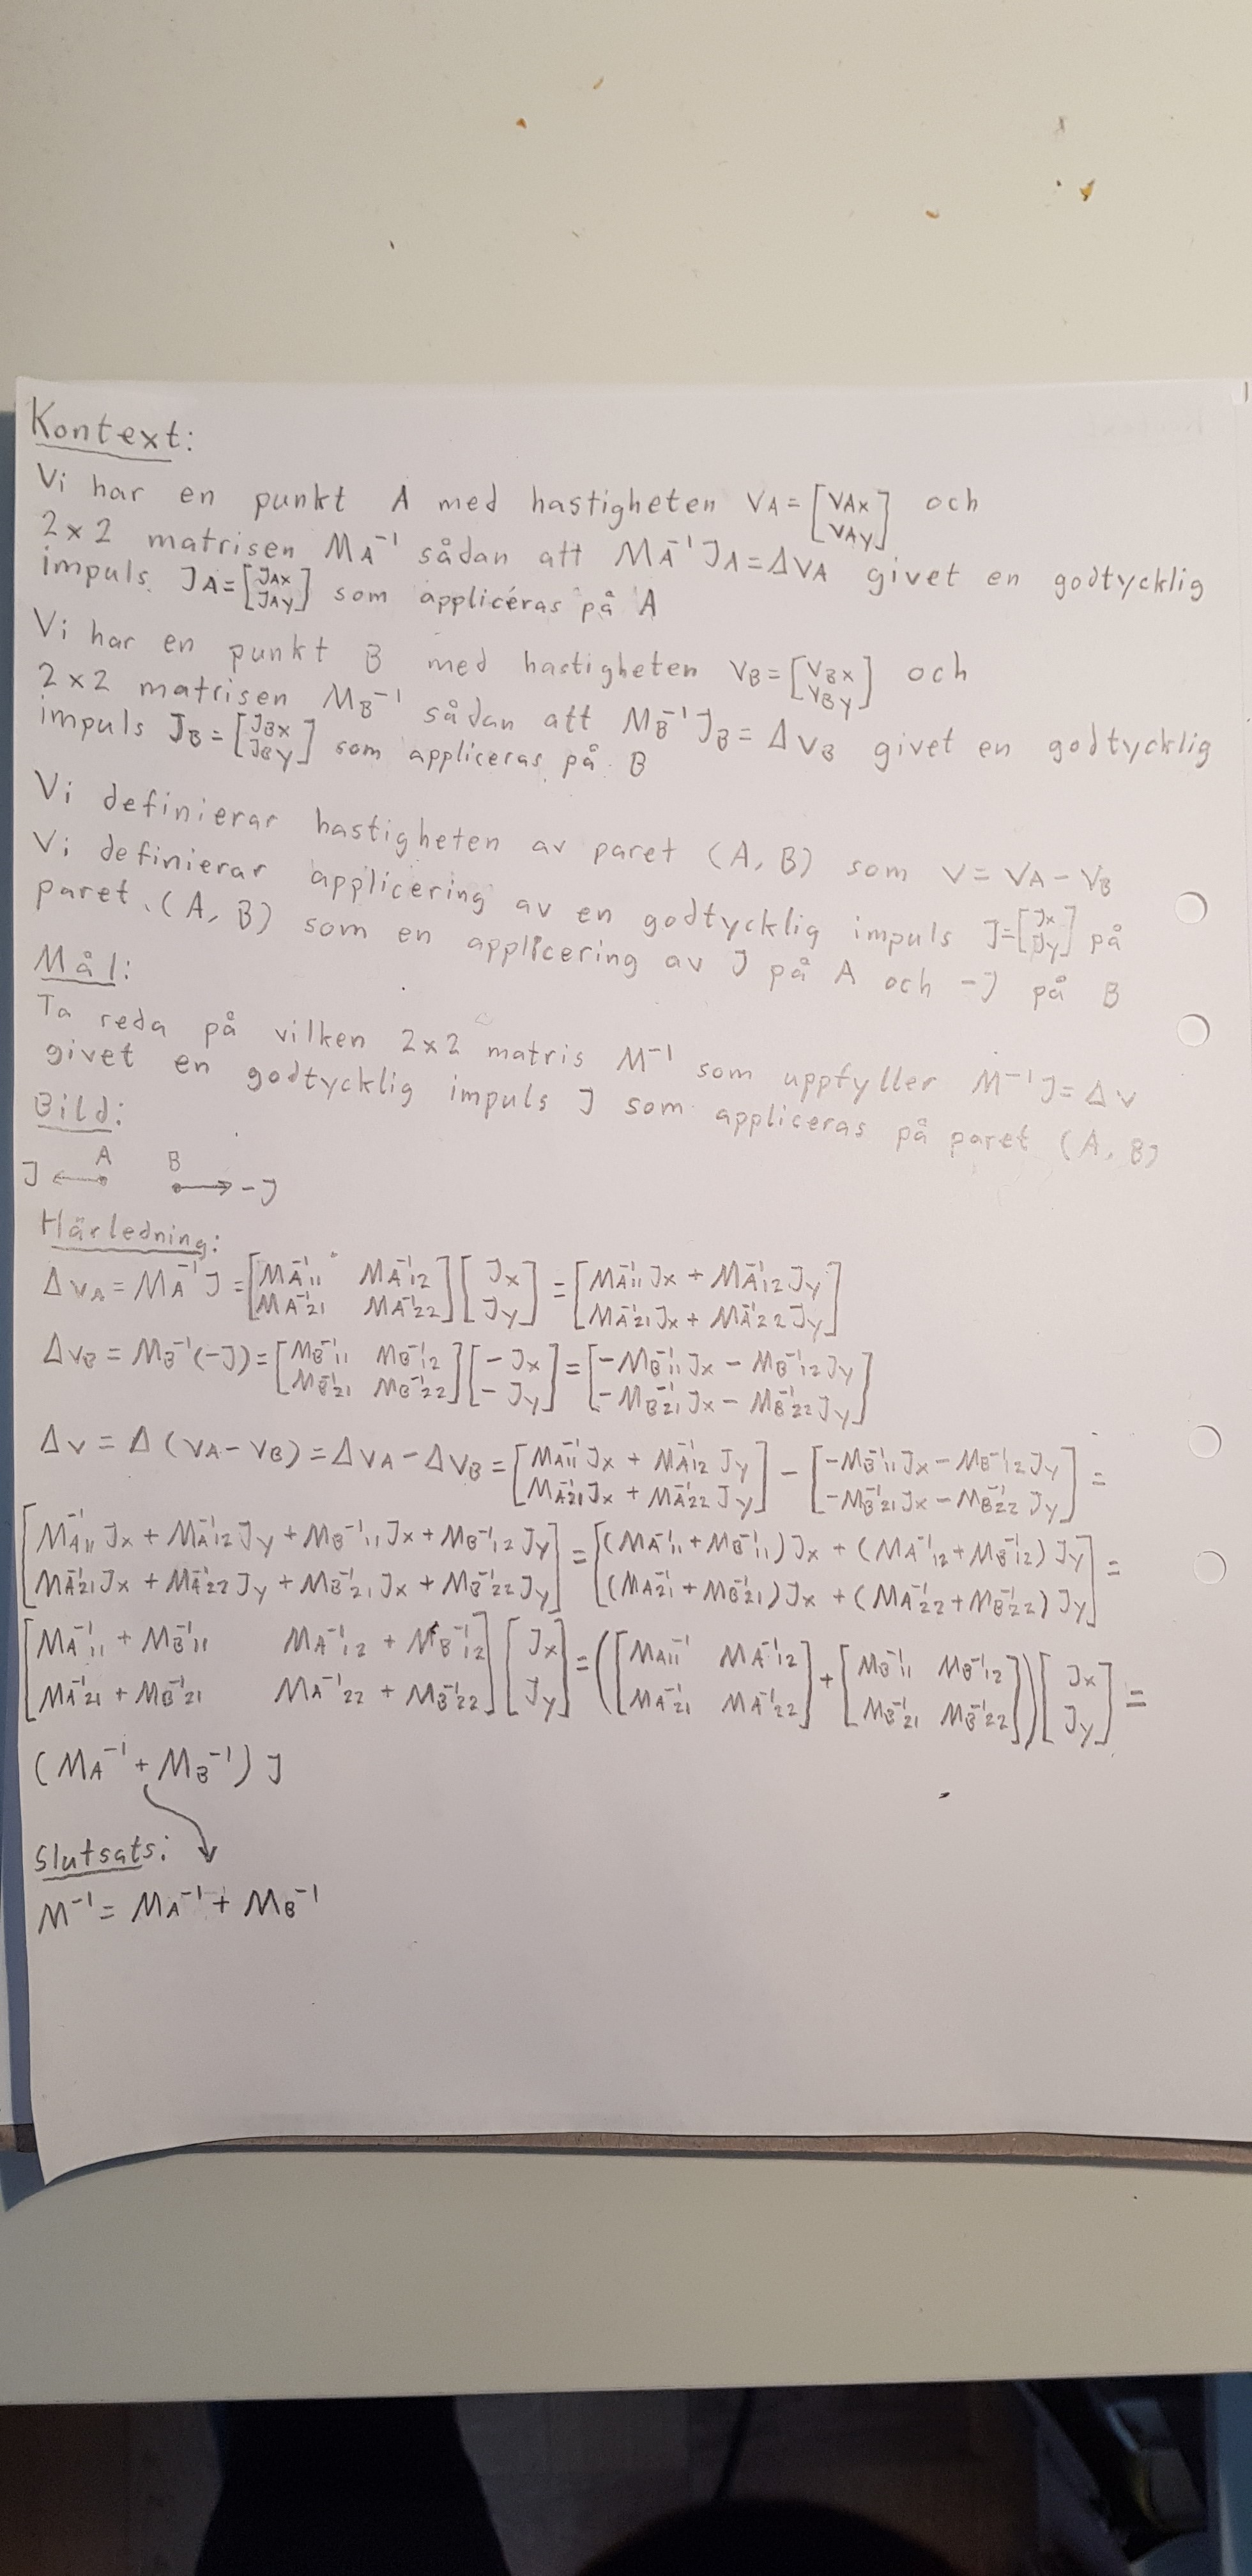 Kontext:
Vi har en punkt A med hastigheten VA = [VAx VAy] och
2x2 matrisen MA⁻¹ sådan att MA⁻¹JA = ΔVA givet en godtycklig
impuls JA = [JAx JAy] som appliceras på A
Vi har en punkt B med hastigheten VB = [VBx VBy] och
2x2 matrisen MB⁻¹ sådan att MB⁻¹JB = ΔVB givet en godtycklig
impuls JB = [JBx JBy] som appliceras på B
Vi definierar hastigheten av paret (A, B) som V = VA - VB
Vi definierar applicering av en godtycklig impuls J = [Jx Jy] på
paret (A, B) som en applicering av J på A och -J på B
Mål:
Ta reda på vilken 2x2 matris M⁻¹ som uppfyller M⁻¹J = ΔV
givet en godtycklig impuls J som appliceras på paret (A, B)
Bild:
A B
J ← → -J
Härledning:
ΔVA = MA⁻¹J = [MA⁻¹11 MA⁻¹12; MA⁻¹21 MA⁻¹22] [Jx; Jy] = [MA⁻¹11Jx + MA⁻¹12Jy; MA⁻¹21Jx + MA⁻¹22Jy]
ΔVB = MB⁻¹(-J) = [MB⁻¹11 MB⁻¹12; MB⁻¹21 MB⁻¹22] [-Jx; -Jy] = [-MB⁻¹11Jx - MB⁻¹12Jy; -MB⁻¹21Jx - MB⁻¹22Jy]
ΔV = Δ(VA - VB) = ΔVA - ΔVB = [MA⁻¹11Jx + MA⁻¹12Jy; MA⁻¹21Jx + MA⁻¹22Jy] - [-MB⁻¹11Jx - MB⁻¹12Jy; -MB⁻¹21Jx - MB⁻¹22Jy] =
[MA⁻¹11Jx + MA⁻¹12Jy + MB⁻¹11Jx + MB⁻¹12Jy; MA⁻¹21Jx + MA⁻¹22Jy + MB⁻¹21Jx + MB⁻¹22Jy] = [(MA⁻¹11 + MB⁻¹11)Jx + (MA⁻¹12 + MB⁻¹12)Jy; (MA⁻¹21 + MB⁻¹21)Jx + (MA⁻¹22 + MB⁻¹22)Jy] =
[MA⁻¹11 + MB⁻¹11 MA⁻¹12 + MB⁻¹12; MA⁻¹21 + MB⁻¹21 MA⁻¹22 + MB⁻¹22] [Jx; Jy] = ([MA⁻¹11 MA⁻¹12; MA⁻¹21 MA⁻¹22] + [MB⁻¹11 MB⁻¹12; MB⁻¹21 MB⁻¹22]) [Jx; Jy] =
(MA⁻¹ + MB⁻¹) J
Slutsats:
M⁻¹ = MA⁻¹ + MB⁻¹